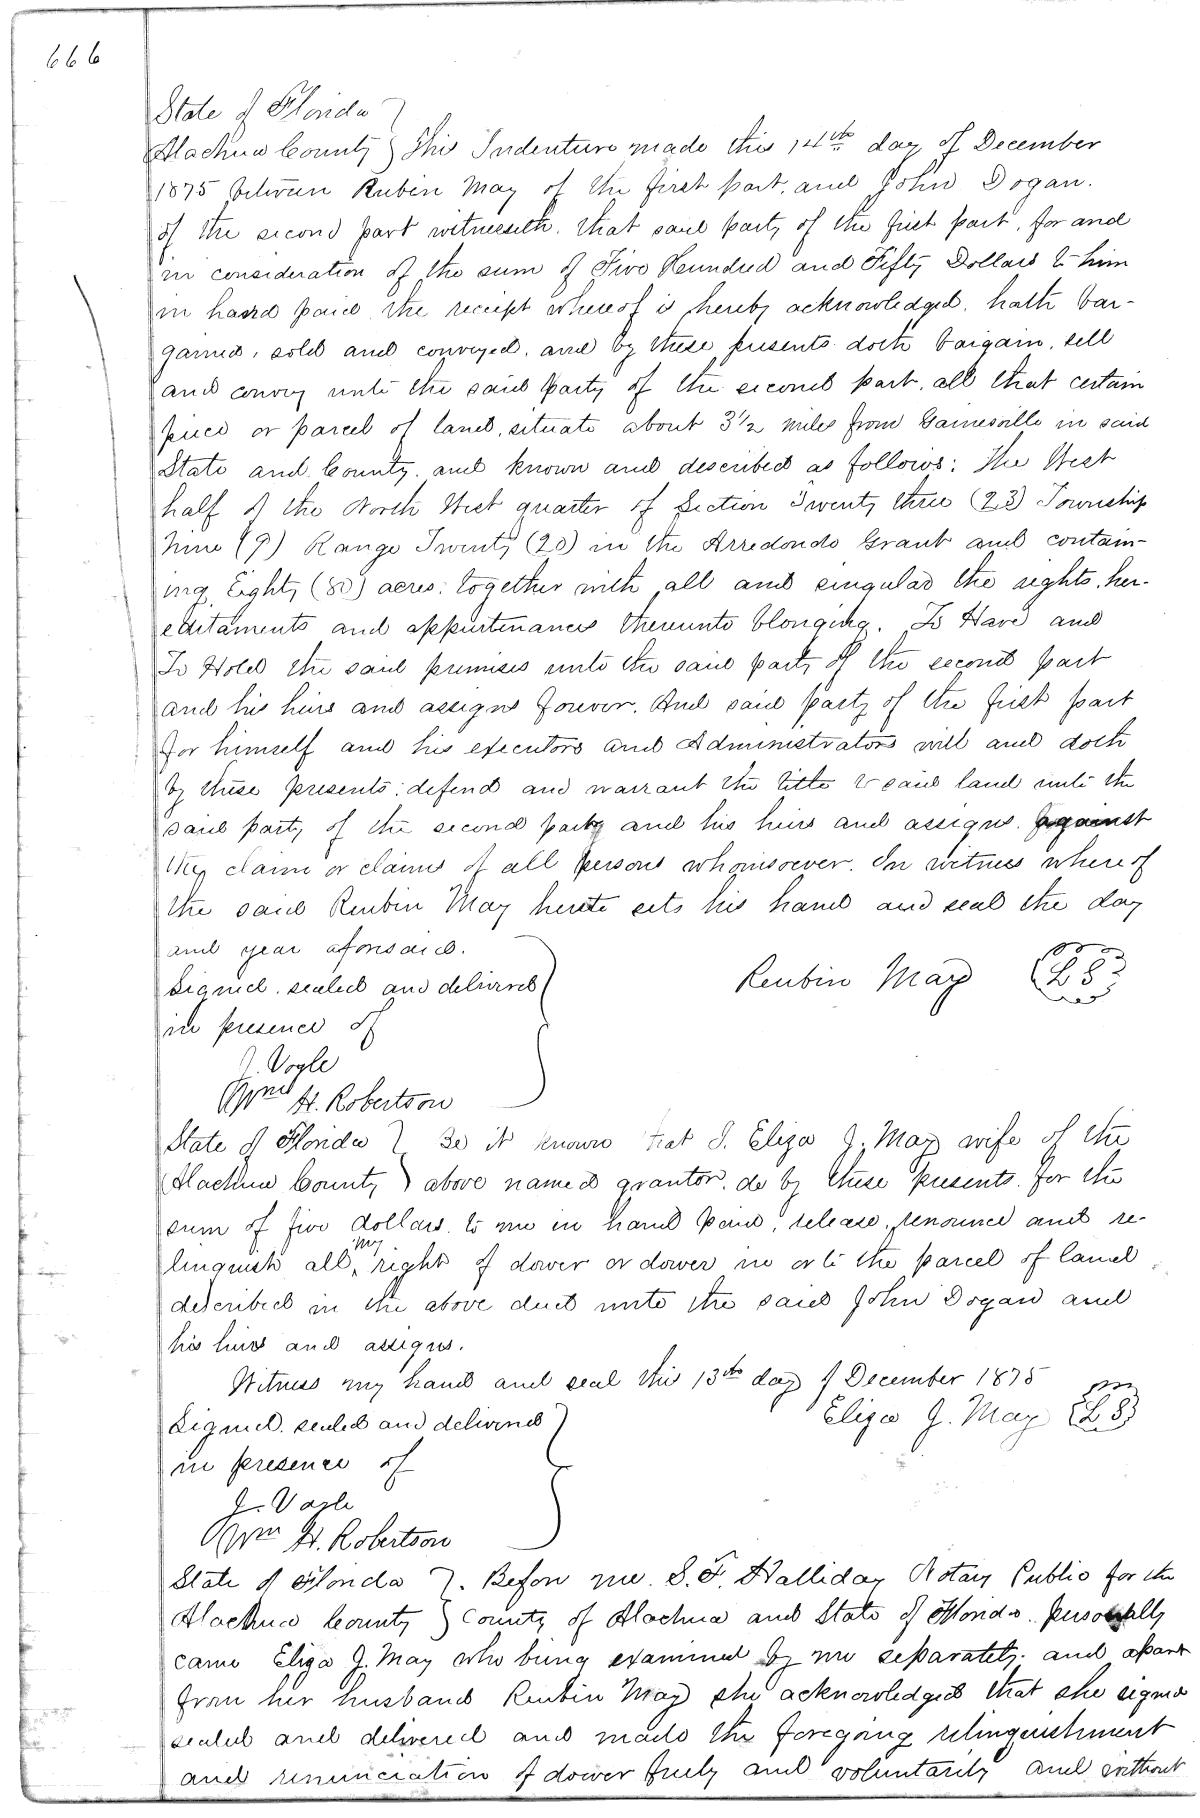 666
State of Florida }
Alachua County } This Indenture made this 14th day of December
1875 between Rubin May of the first part, and John Dogan.
of the second part witnesseth. that said party of the first part, for and
in consideration of the sum of Five Hundred and Fifty Dollars to him
in hand paid the receipt whereof is hereby acknowledged, hath bar-
gained, sold and conveyed, and by these presents doth bargain, sell
and convey unto the said party of the second part, all that certain
piece or parcel of land, situate about 3½ miles from Gainesville in said
State and County, and known and described as follows: The West
half of the North West quarter of Section Twenty three (23) Township
Nine (9) Range Twenty (20) in the Arredondo Grant and contain-
ing Eighty (80) acres: together with all and singular the rights, her-
editaments and appurtenances thereunto blonging. To Have and
To Hold the said premises unto the said party of the second part
and his heirs and assigns forever. And said party of the first part
for himself and his executors and Administrators will and doth
by these presents: defend and warrant the title to said land unto the
said party of the second party and his heirs and assigns. against
the claim or claims of all persons whomsoever. In witness whereof
the said Reubin May hereto sets his hand and seal the day
and year aforesaid.
Signed. sealed and delivered } Reubin May {L S}
in presence of
J. Vogle
Wm H. Robertson
State of Florida } Be it known that I. Eliza J. May wife of the
Alachua County } above named grantor. do by these presents. for the
sum of five dollars. to me in hand paid, release, renounce and re-
linquish all my right of dower or dower in or to the parcel of land
described in the above deed unto the said John Dogan and
his heirs and assigns.
Witness my hand and seal this 13th day of December 1875
Signed. sealed and delivered } Eliza J. May {L S}
in presence of
J. Vogle
Wm H. Robertson
State of Florida }. Before me. S. F. Halliday Notary Public for the
Alachua County } County of Alachua and State of Florida. personally
came Eliza J. May who being examined by me separately. and apart
from her husband Reubin May she acknowledged that she signed
sealed and delivered and made the foregoing relinquishment
and renunciation of dower freely and voluntarily and without